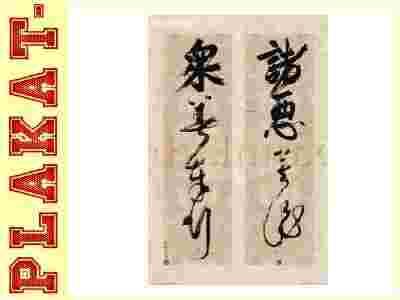 PLAKAT-
諸悪莫作
衆善奉行